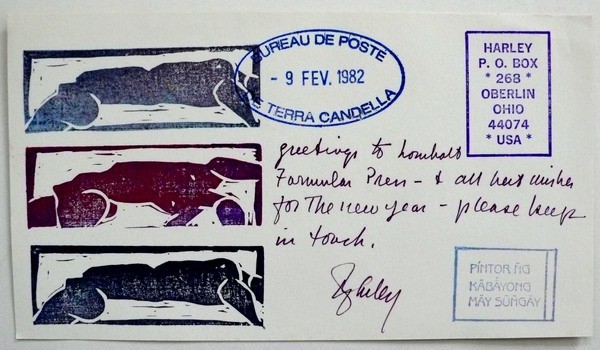 BUREAU DE POSTE
- 9 FEV. 1982
DE TERRA CANDELLA
HARLEY
P. O. BOX
* 268 *
OBERLIN
OHIO
44074
* USA *
greetings to
Formular Press - & all best wishes
for the new year - please keep
in touch.
Harley
PÍNTOR ÑG
KÂBÁYONG
MÂY SÛÑGAY